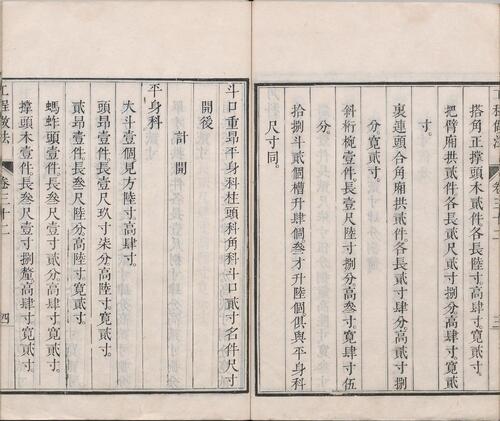 搭角正撑頭木貳件各長陸寸高肆寸寬貳寸
把臂廂拱貳件各長貳尺貳寸捌分高肆寸寬貳
寸
裏連頭合角廂拱貳件各長貳寸肆分高貳寸捌
分寬貳寸
斜桁椀壹件長壹尺陸寸捌分高叁寸寬肆寸伍
分
拾捌斗貳個槽升肆個叁才升陸個俱與平身科
尺寸同
斗口重昂平身科柱頭科角科斗口貳寸名件尺寸
開後
計開
平身科
大斗壹個見方陸寸高肆寸
頭昂壹件長壹尺玖寸柒分高陸寸寬貳寸
貳昂壹件長叁尺陸分高陸寸寬貳寸
螞蚱頭壹件長叁尺壹寸貳分高肆寸寬貳寸
撑頭木壹件長叁尺壹寸捌釐高肆寸寬貳寸
工程做法 卷三十二 四